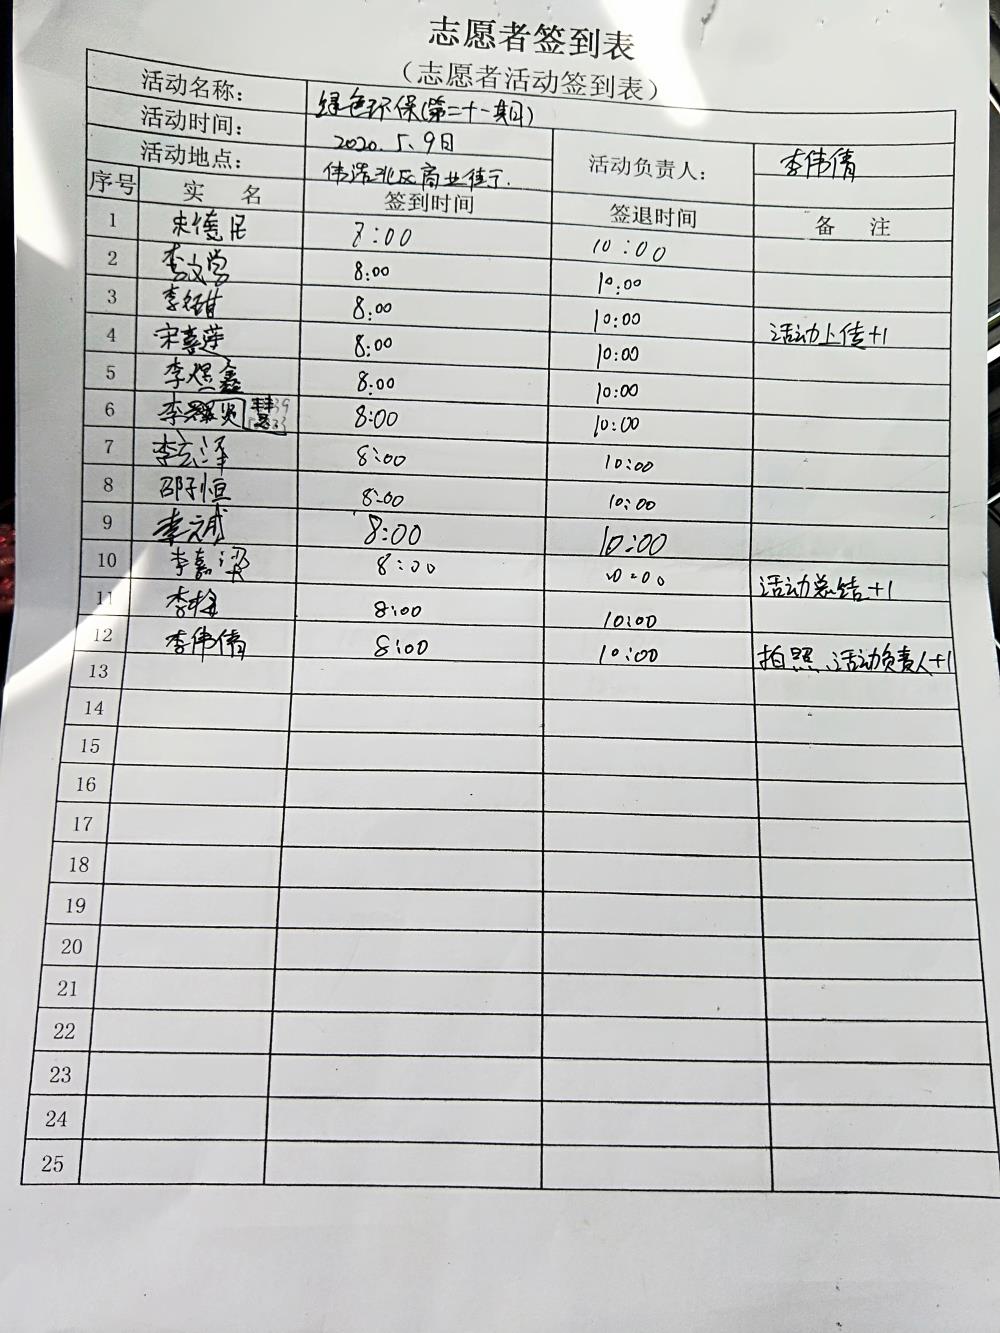 志愿者签到表
(志愿者活动签到表)
活动名称: 绿色环保(第二十一期)
活动时间: 2020.5.9日 活动负责人: 李伟倩
活动地点: 伟浩北区商业街
序号 实 名 签到时间 签退时间 备 注
1 宋德民 7:00 10:00
2 李文学 8:00 10:00
3 8:00 10:00
4 宋喜莲 8:00 10:00 活动上传+1
5 李煜鑫 8:00 10:00
6 8:00 10:00
7 李玄泽 8:00 10:00
8 邵子恒 8:00 10:00
9 李元成 8:00 10:00
10 李嘉梁 8:00 10:00 活动总结+1
11 李梅 8:00 10:00
12 李伟倩 8:00 10:00 拍照、活动负责人+1
13
14
15
16
17
18
19
20
21
22
23
24
25